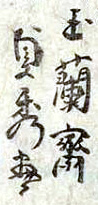 玉蘭齋
貞秀畫